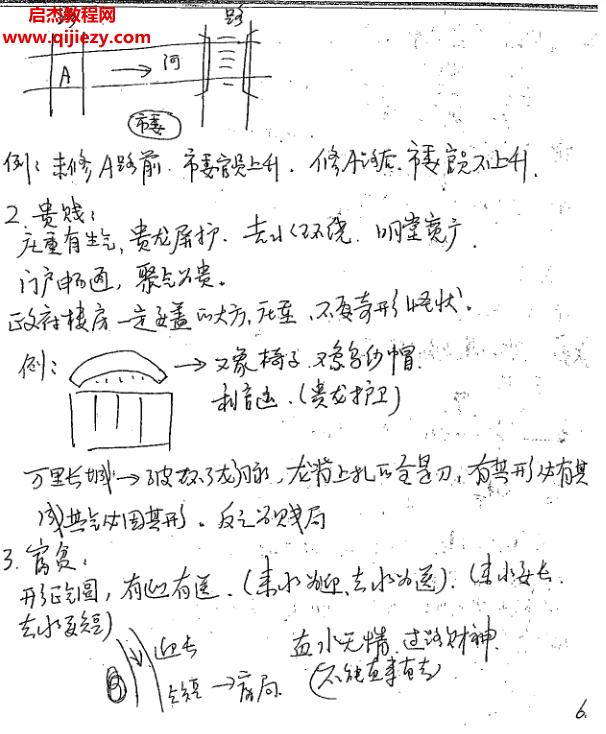 启杰教程网
www.qijiezy.com
路
A → 河
市委
例：未修A路前，市委官员上升，修A路后，市委官员不上升。
2. 贵贱：
庄重有生气，贵龙屏护，去水环绕，明堂宽广，
门户畅通，聚气为贵。
政府楼房一定要盖的大方，庄重，不要奇形怪状。
例： → 又象椅子又象乌纱帽
利官运。（贵龙护卫）
万里长城 → 破坏了龙脉，龙背上扎的全是刀，有其形必有其
气，其气必因其形。反之为贱局
3. 富贫：
形正气圆，有迎有送。（来水为迎，去水为送）。（来水要长
去水要短）
迎长
去短 → 富局
直水无情，过路财神
（不能直来直去）
6.